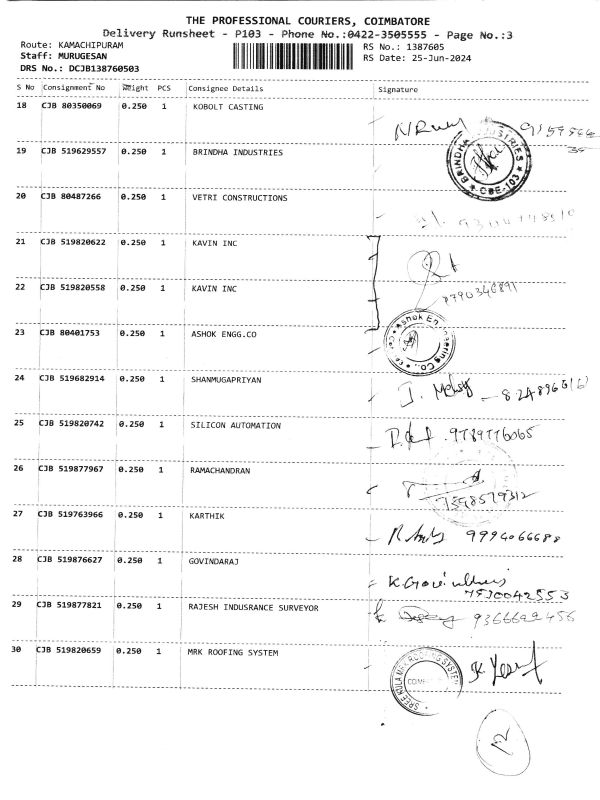 THE PROFESSIONAL COURIERS, COIMBATORE
Delivery Runsheet - P103 - Phone No.:0422-3505555 - Page No.:3
Route: KAMACHIPURAM
RS No.: 1387605
Staff: MURUGESAN
RS Date: 25-Jun-2024
DRS No.: DCJB138760503
S No Consignment No Weight PCS Consignee Details Signature
18 CJB 80350069 0.250 1 KOBOLT CASTING
19 CJB 519629557 0.250 1 BRINDHA INDUSTRIES
BRINDHA INDUSTRIES * CBE-103 *
20 CJB 80487266 0.250 1 VETRI CONSTRUCTIONS
21 CJB 519820622 0.250 1 KAVIN INC
22 CJB 519820558 0.250 1 KAVIN INC
8790346891
23 CJB 80401753 0.250 1 ASHOK ENGG.CO
Ashok Engineering Co.,
24 CJB 519682914 0.250 1 SHANMUGAPRIYAN
25 CJB 519820742 0.250 1 SILICON AUTOMATION
9789776065
26 CJB 519877967 0.250 1 RAMACHANDRAN
7598579312
27 CJB 519763966 0.250 1 KARTHIK
9994066688
28 CJB 519876627 0.250 1 GOVINDARAJ
7530042553
29 CJB 519877821 0.250 1 RAJESH INDUSRANCE SURVEYOR
9366692456
30 CJB 519820659 0.250 1 MRK ROOFING SYSTEM
SREE KULA MRK ROOFING SYSTEM
12